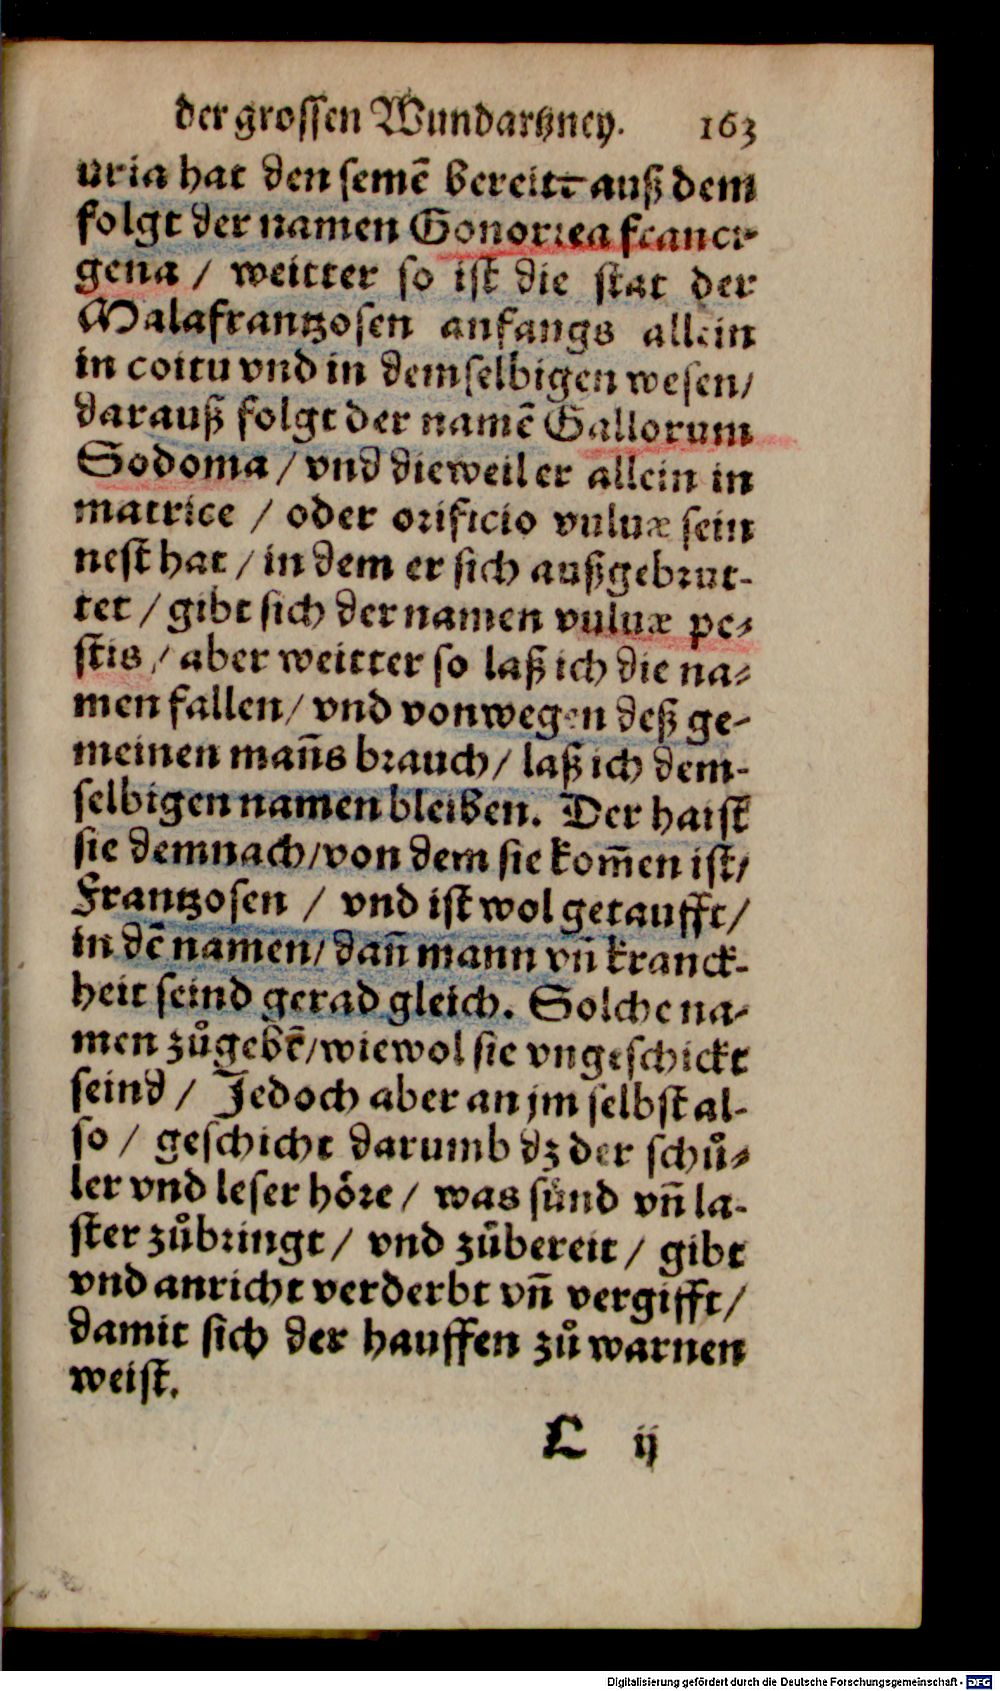 der grossen Wundartzney. 163
uria hat den semē bereitt auß dem
folgt der namen Gonorrea franci-
gena / weitter so ist die stat der
Malafrantzosen anfangs allein
in coitu vnd in demselbigen wesen/
darauß folgt der namē Gallorum
Sodoma / vnd dieweil er allein in
matrice / oder orificio vuluæ sein
nest hat / in dem er sich außgebrut-
tet / gibt sich der namen vuluæ pe-
stis / aber weitter so laß ich die na-
men fallen / vnd vonwegen deß ge-
meinen mañs brauch / laß ich dem-
selbigen namen bleiben. Der haist
sie demnach / von dem sie kom̄en ist/
Frantzosen / vnd ist wol getaufft /
in dē namen / dañ mann vñ kranck-
heit seind gerad gleich. Solche na-
men zůgebē / wiewol sie vngeschickt
seind / Jedoch aber an jm selbst al-
so / geschicht darumb dz der schů-
ler vnd leser höre / was sünd vñ la-
ster zůbringt / vnd zůbereit / gibt
vnd anricht verderbt vñ vergifft /
damit sich der hauffen zů warnen
weist.
L ij
Digitalisierung gefördert durch die Deutsche Forschungsgemeinschaft - DFG